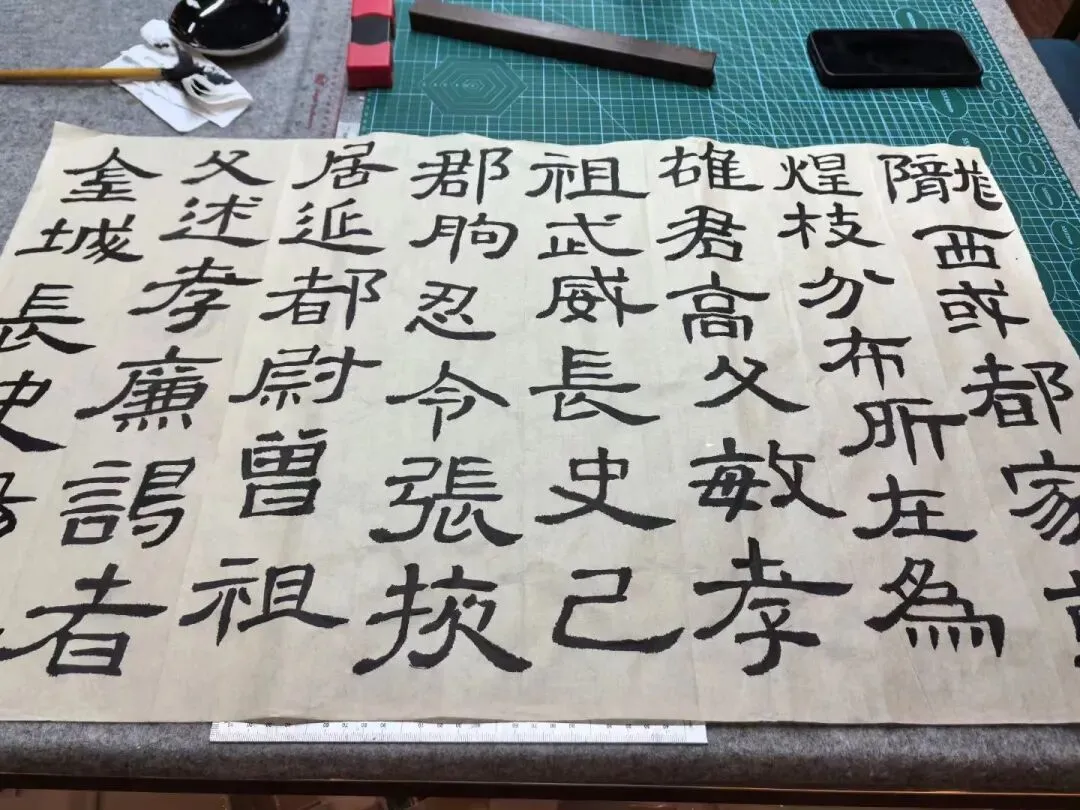 隴西或都家
煌枝分布所在為
雄君高父敏孝
祖武威長史巴
郡朐忍令張掖
居延都尉曾祖
父述孝廉謁者
金城長史